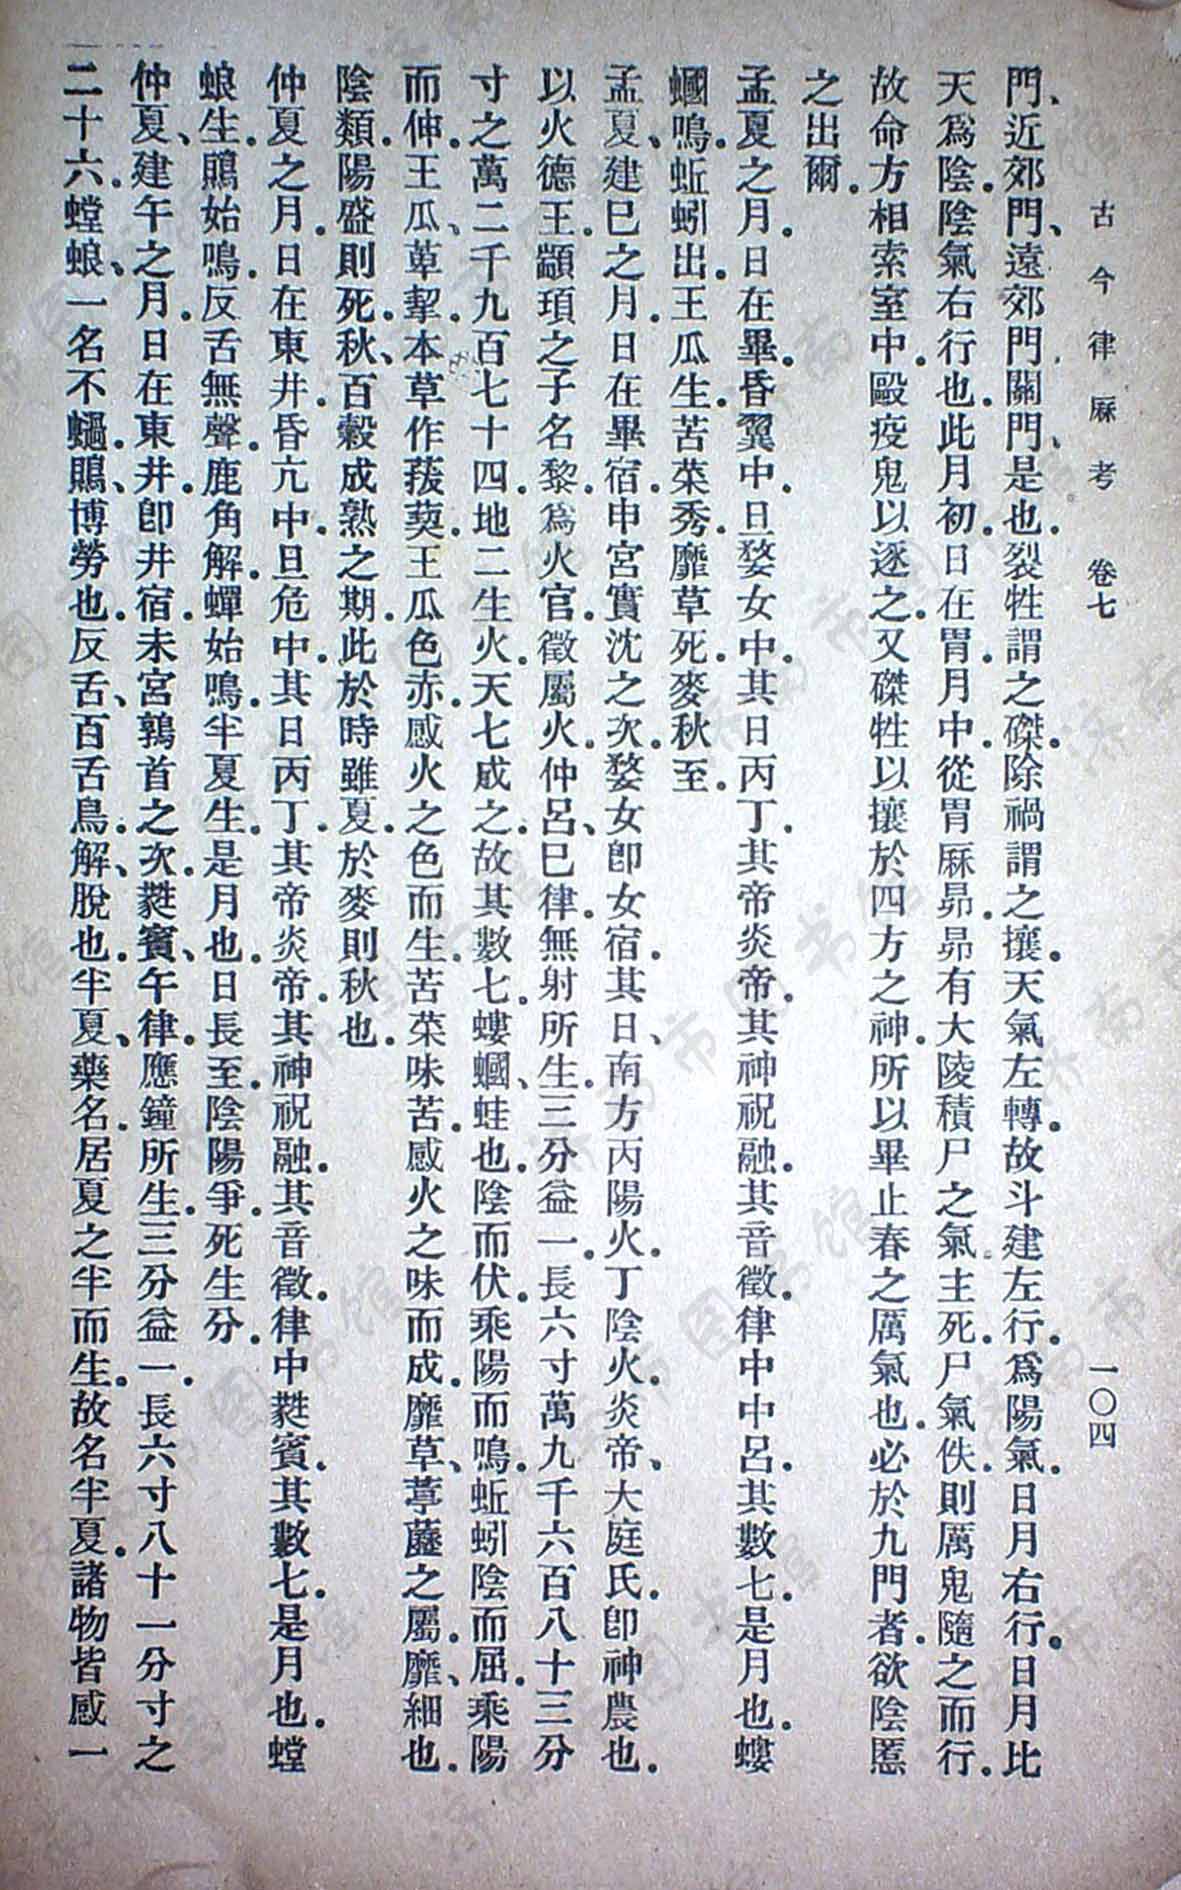 古今律厤考　卷七　一〇四
門、近郊門、遠郊門、關門、是也。裂牲謂之磔。除禍謂之攘。天氣左轉。故斗建左行。爲陽氣。日月右行。日月比
天爲陰。陰氣右行也。此月初。日在胃。月中。從胃厤昴。昴有大陵積尸之氣。主死。尸氣佚。則厲鬼隨之而行。
故命方相索室中。毆疫鬼以逐之。又磔牲以攘於四方之神。所以畢止春之厲氣也。必於九門者。欲陰慝
之出爾。
孟夏之月。日在畢。昏翼中。旦婺女中。其日丙丁。其帝炎帝。其神祝融。其音徵。律中中呂。其數七。是月也。螻
蟈鳴。蚯蚓出。王瓜生。苦菜秀。靡草死。麥秋至。
孟夏、建巳之月。日在畢宿。申宮實沈之次。婺女卽女宿。其日、南方丙陽火。丁陰火。炎帝、大庭氏。卽神農也。
以火德王。顓頊之子名黎。爲火官。徵屬火。仲呂、巳律。無射所生。三分益一。長六寸萬九千六百八十三分
寸之萬二千九百七十四。地二生火。天七成之。故其數七。螻蟈、蛙也。陰而伏。乘陽而鳴。蚯蚓陰而屈。乘陽
而伸。王瓜、萆挈。本草作菝葜。王瓜色赤。感火之色而生。苦菜味苦。感火之味而成。靡草、葶藶之屬。靡、細也。
陰類。陽盛則死。秋、百穀成熟之期。此於時雖夏。於麥則秋也。
仲夏之月。日在東井。昏亢中。旦危中。其日丙丁。其帝炎帝。其神祝融。其音徵。律中蕤賓。其數七。是月也。螳
蜋生。鵙始鳴。反舌無聲。鹿角解。蟬始鳴。半夏生。是月也。日長至。陰陽爭。死生分。
仲夏、建午之月。日在東井。卽井宿。未宮鶉首之次。蕤賓、午律。應鐘所生。三分益一。長六寸八十一分寸之
二十六。螳蜋、一名不蠲。鵙、博勞也。反舌、百舌鳥。解、脫也。半夏、藥名。居夏之半而生。故名半夏。諸物皆感一